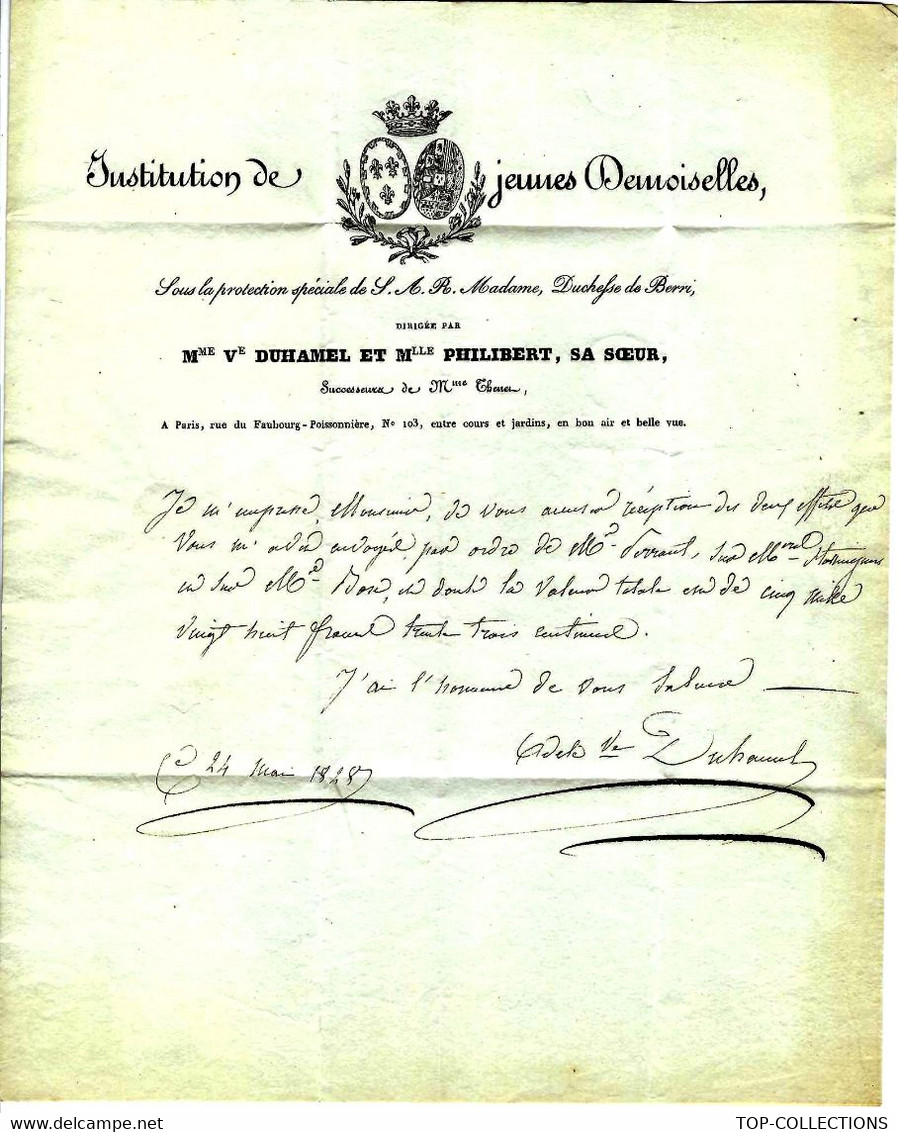 Institution de jeunes Demoiselles,
Sous la protection spéciale de S. A. R. Madame, Duchesse de Berri,
DIRIGÉE PAR
MME VE DUHAMEL ET MLLE PHILIBERT, SA SŒUR,
Successeurs de Mme
A Paris, rue du Faubourg-Poissonnière, No 103, entre cours et jardins, en bon air et belle vue.
Je m'empresse, Monsieur, de vous accuser réception des deux effets que
vous m'avez envoyés par ordre de Mr sur
et sur Mr et dont la valeur totale est de cinq mille
vingt huit francs trente trois centimes.
J'ai l'honneur de vous saluer
Adele Ve Duhamel
Ce 24 mai 1828
TOP-COLLECTIONS